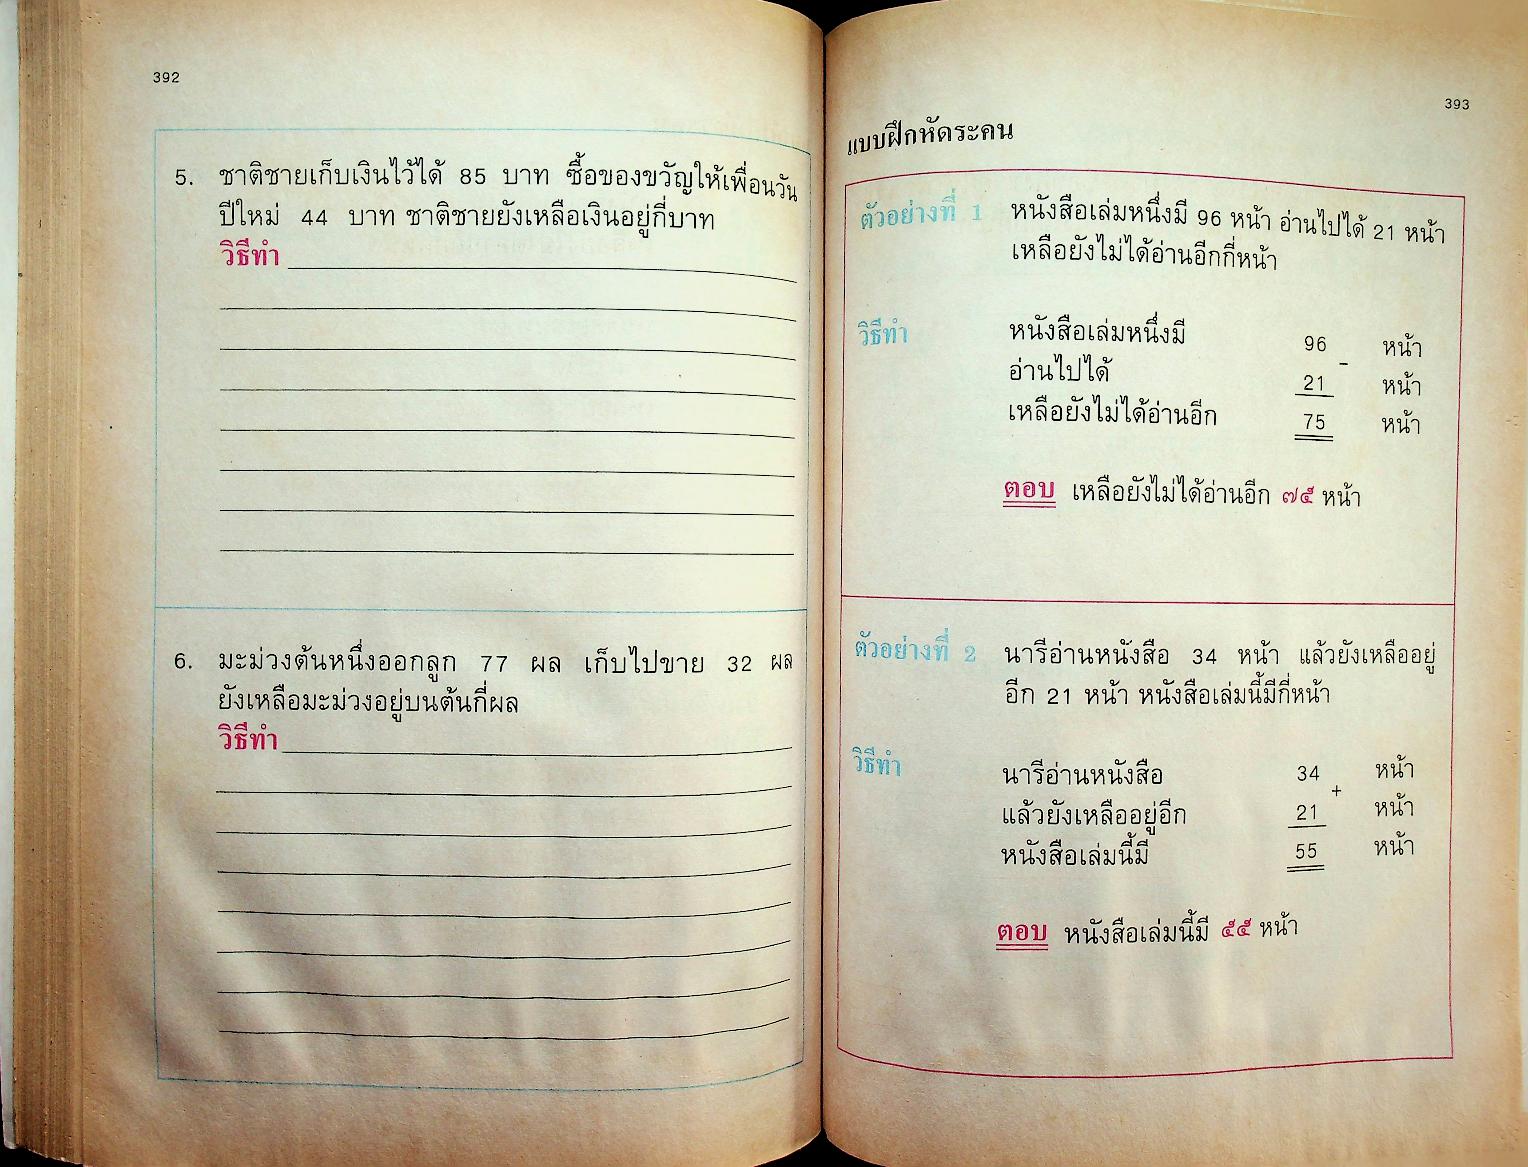 392
5. ชาติชายเก็บเงินไว้ได้ 85 บาท ซื้อของขวัญให้เพื่อนวัน
ปีใหม่ 44 บาท ชาติชายยังเหลือเงินอยู่กี่บาท
วิธีทำ
6. มะม่วงต้นหนึ่งออกลูก 77 ผล เก็บไปขาย 32 ผล
ยังเหลือมะม่วงอยู่บนต้นกี่ผล
วิธีทำ
393
แบบฝึกหัดระคน
ตัวอย่างที่ 1 หนังสือเล่มหนึ่งมี 96 หน้า อ่านไปได้ 21 หน้า
เหลือยังไม่ได้อ่านอีกกี่หน้า
วิธีทำ หนังสือเล่มหนึ่งมี 96 หน้า
-
อ่านไปได้ 21 หน้า
เหลือยังไม่ได้อ่านอีก 75 หน้า
ตอบ เหลือยังไม่ได้อ่านอีก ๗๕ หน้า
ตัวอย่างที่ 2 นารีอ่านหนังสือ 34 หน้า แล้วยังเหลืออยู่
อีก 21 หน้า หนังสือเล่มนี้มีกี่หน้า
วิธีทำ นารีอ่านหนังสือ 34 หน้า
+
แล้วยังเหลืออยู่อีก 21 หน้า
หนังสือเล่มนี้มี 55 หน้า
ตอบ หนังสือเล่มนี้มี ๕๕ หน้า